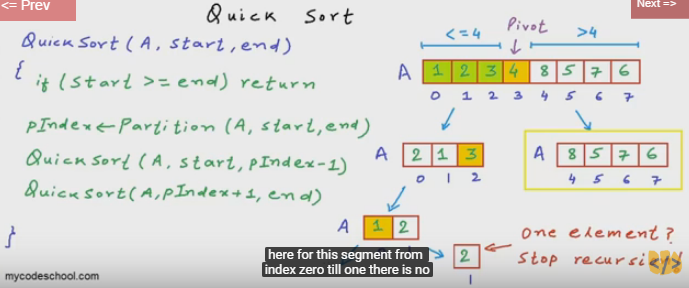 <= Prev
Next =>
Quick Sort
QuickSort (A, start, end)
{
if (start >= end) return
pIndex ← Partition (A, start, end)
QuickSort (A, start, pIndex-1)
QuickSort(A, pIndex+1, end)
}
<=4 Pivot >4
A 1 2 3 4 8 5 7 6
0 1 2 3 4 5 6 7
A 2 1 3
0 1 2
A 8 5 7 6
4 5 6 7
A 1 2
2
1
one element?
Stop recursi
here for this segment from
index zero till one there is no
mycodeschool.com